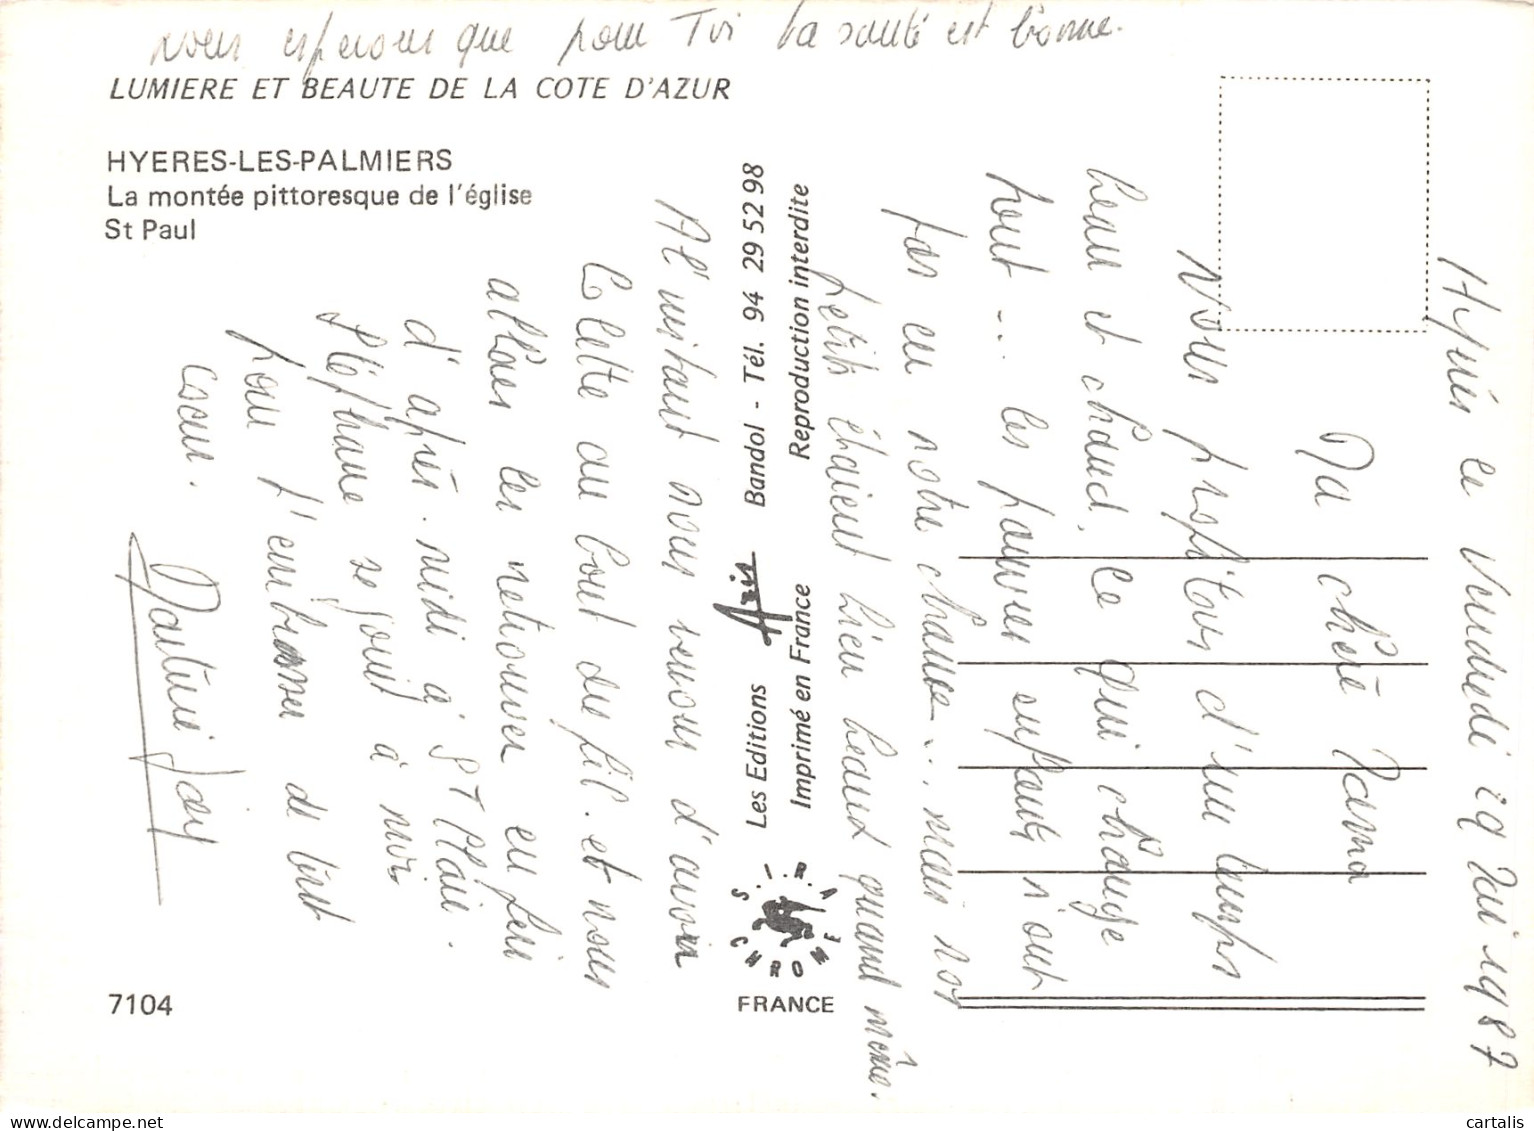 nous esperons que pour Toi la santé est bonne.
LUMIERE ET BEAUTE DE LA COTE D'AZUR
HYERES-LES-PALMIERS
La montée pittoresque de l'église
St Paul
7104
Les Editions Aris Bandol - Tél. 94 29 52 98
Imprimé en France Reproduction interdite
S.I.R.A
CHROME
FRANCE
Hyères le Vendredi 29 Mai 1987
Ma chère Mama
Nous profitons d'un temps
beau et chaud, ce qui change
tout ... les pauvres enfants n'ont
pas eu notre chance ... mais nos
petits étaient bien beaux quand même.
A l'instant nous venons d'avoir
Colette au bout du fil. et nous
allons les retrouver en fin
d'après-midi à St Clair.
Stéphane se joint à moi
pour t'embrasser de tout
coeur.
Martine